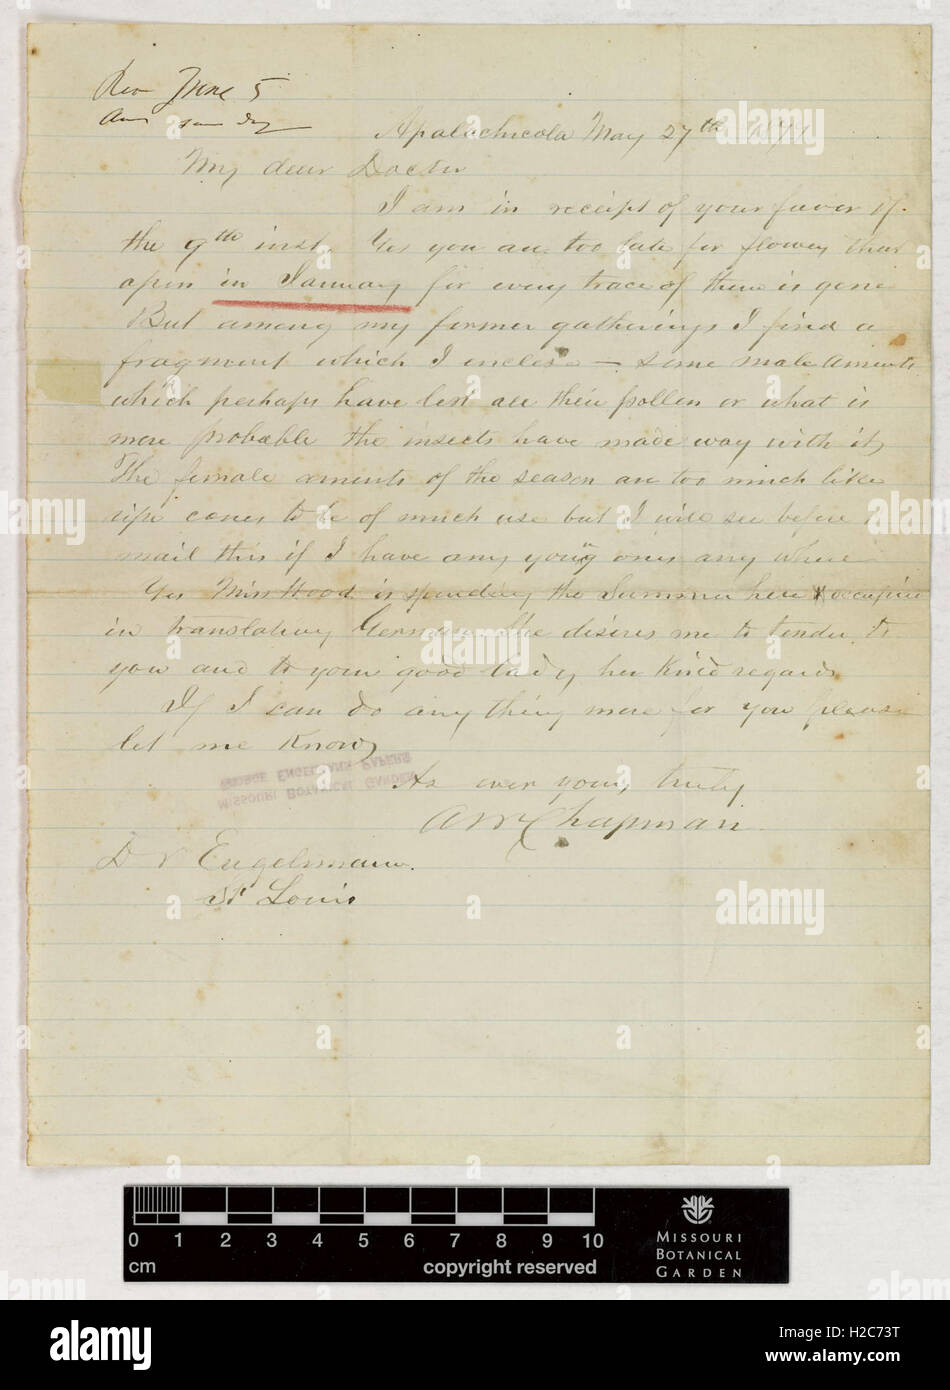 Rec June 5
Ans same day
Apalachicola May 27th 1871
My dear Doctor
I am in receipt of your favor of
the 9th inst. Yes you are too late for flowers that
open in January for every trace of them is gone
But among my former gatherings I find a
fragment which I enclose — some male aments
which perhaps have lost all their pollen or what is
more probable the insects have made way with it,
The female aments of the season are too much like
ripe cones to be of much use but I will see before I
mail this if I have any young ones any where
Yes Miss Hood is spending the Summer here & occupied
in translating German. She desires me to tender to
you and to your good lady her kind regards
If I can do any thing more for you please
let me know,
As ever yours truly
A W Chapman
Dr Engelmann.
St Louis
MISSOURI BOTANICAL GARDEN
GEORGE ENGELMANN PAPERS
0 1 2 3 4 5 6 7 8 9 10
cm
copyright reserved
MISSOURI
BOTANICAL
GARDEN
alamy
alamy
Image ID: H2C73T
www.alamy.com